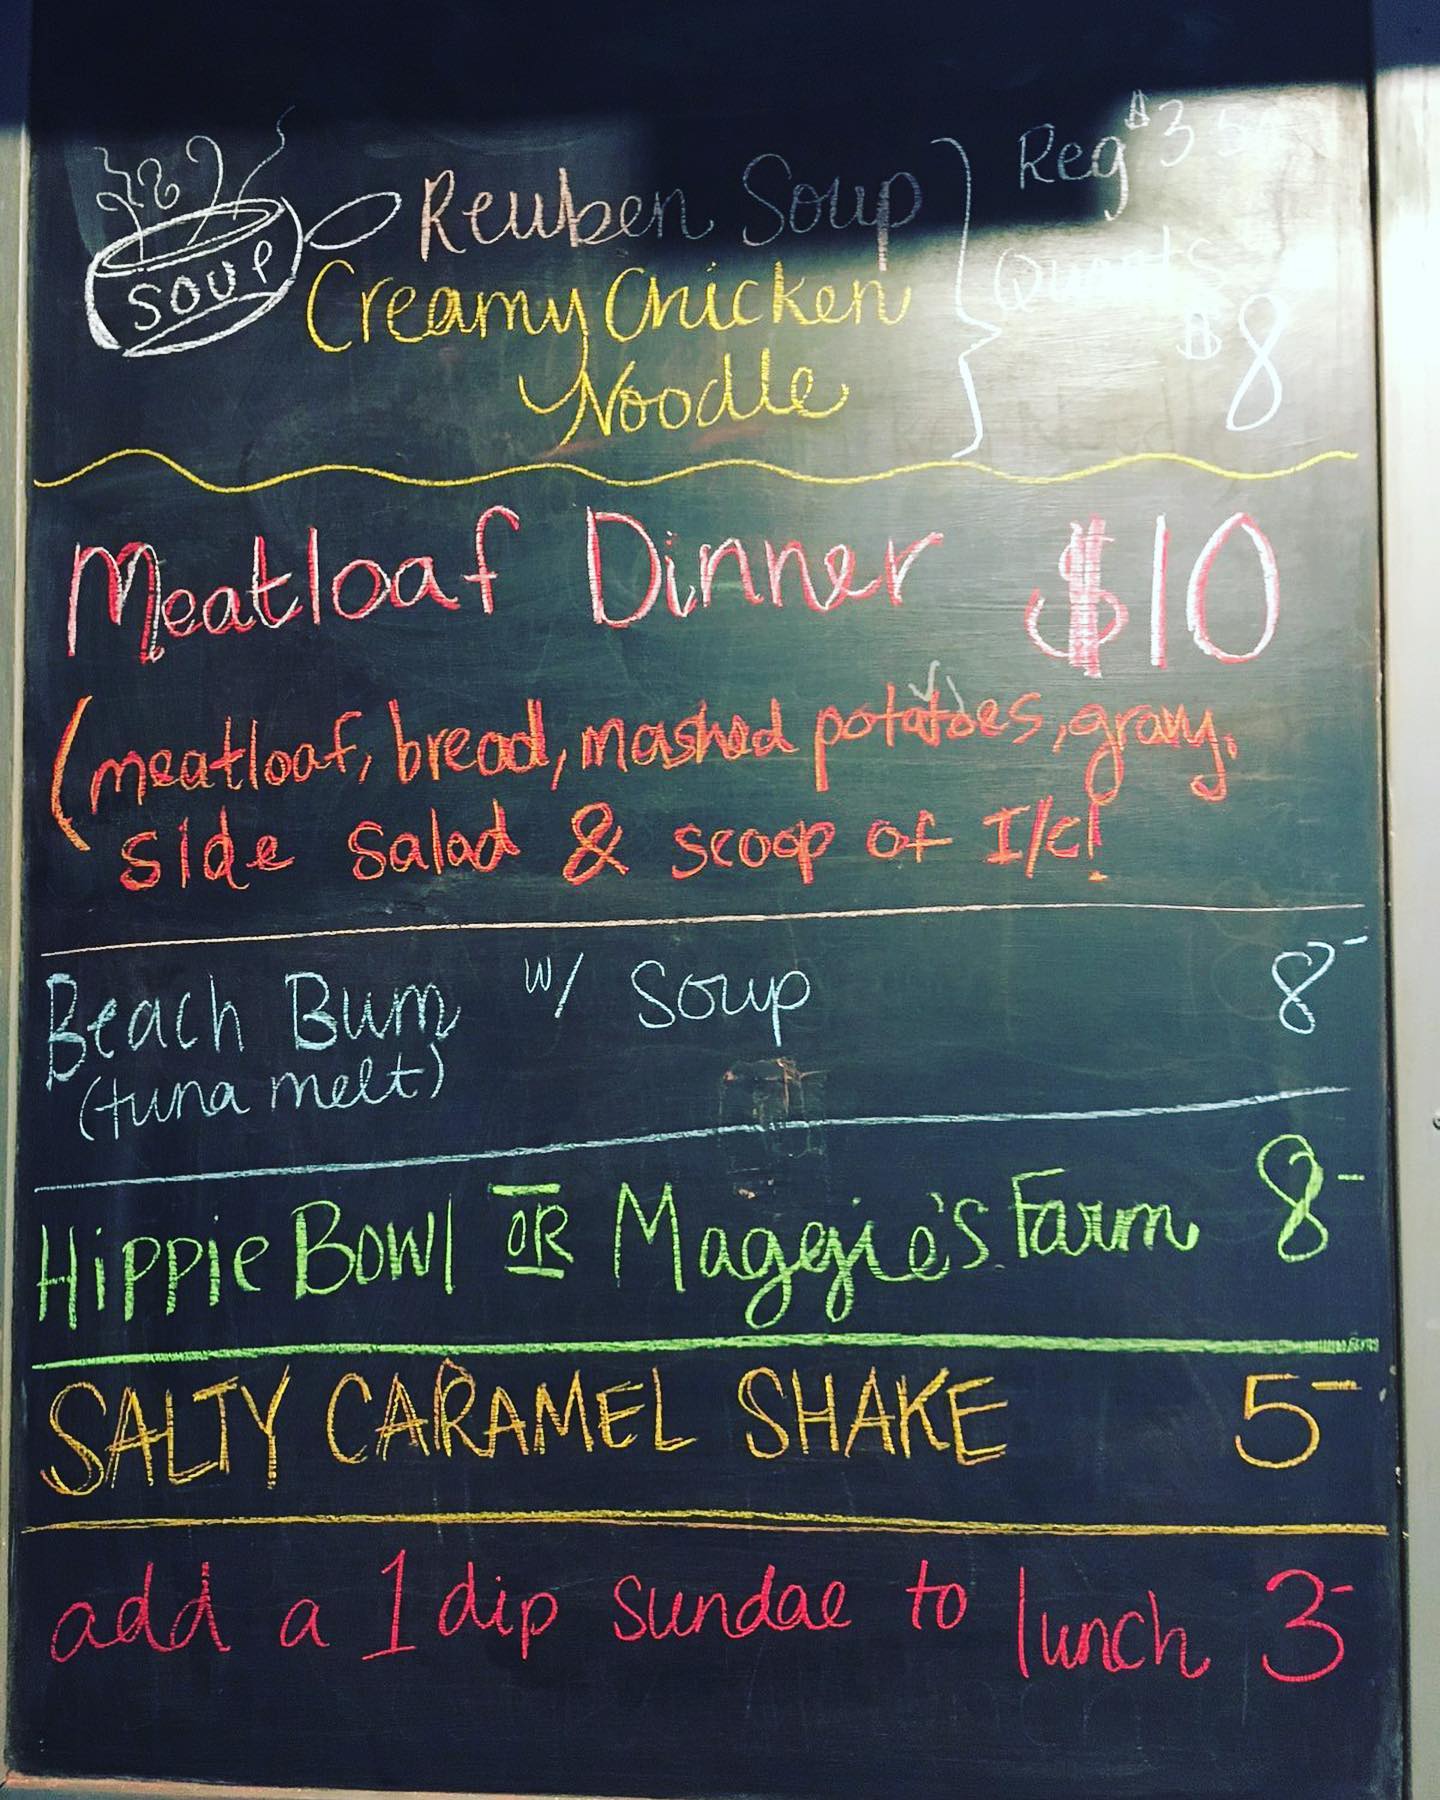 SOUP
Reuben Soup
Creamy Chicken
Noodle
Reg $3.50
Quarts
$8
Meatloaf Dinner $10
(meatloaf, bread, mashed potatoes, gravy,
side salad & scoop of I/C!
Beach Bum w/ Soup 8-
(tuna melt)
Hippie Bowl OR Maggie's Farm 8-
SALTY CARAMEL SHAKE 5-
add a 1 dip sundae to lunch 3-